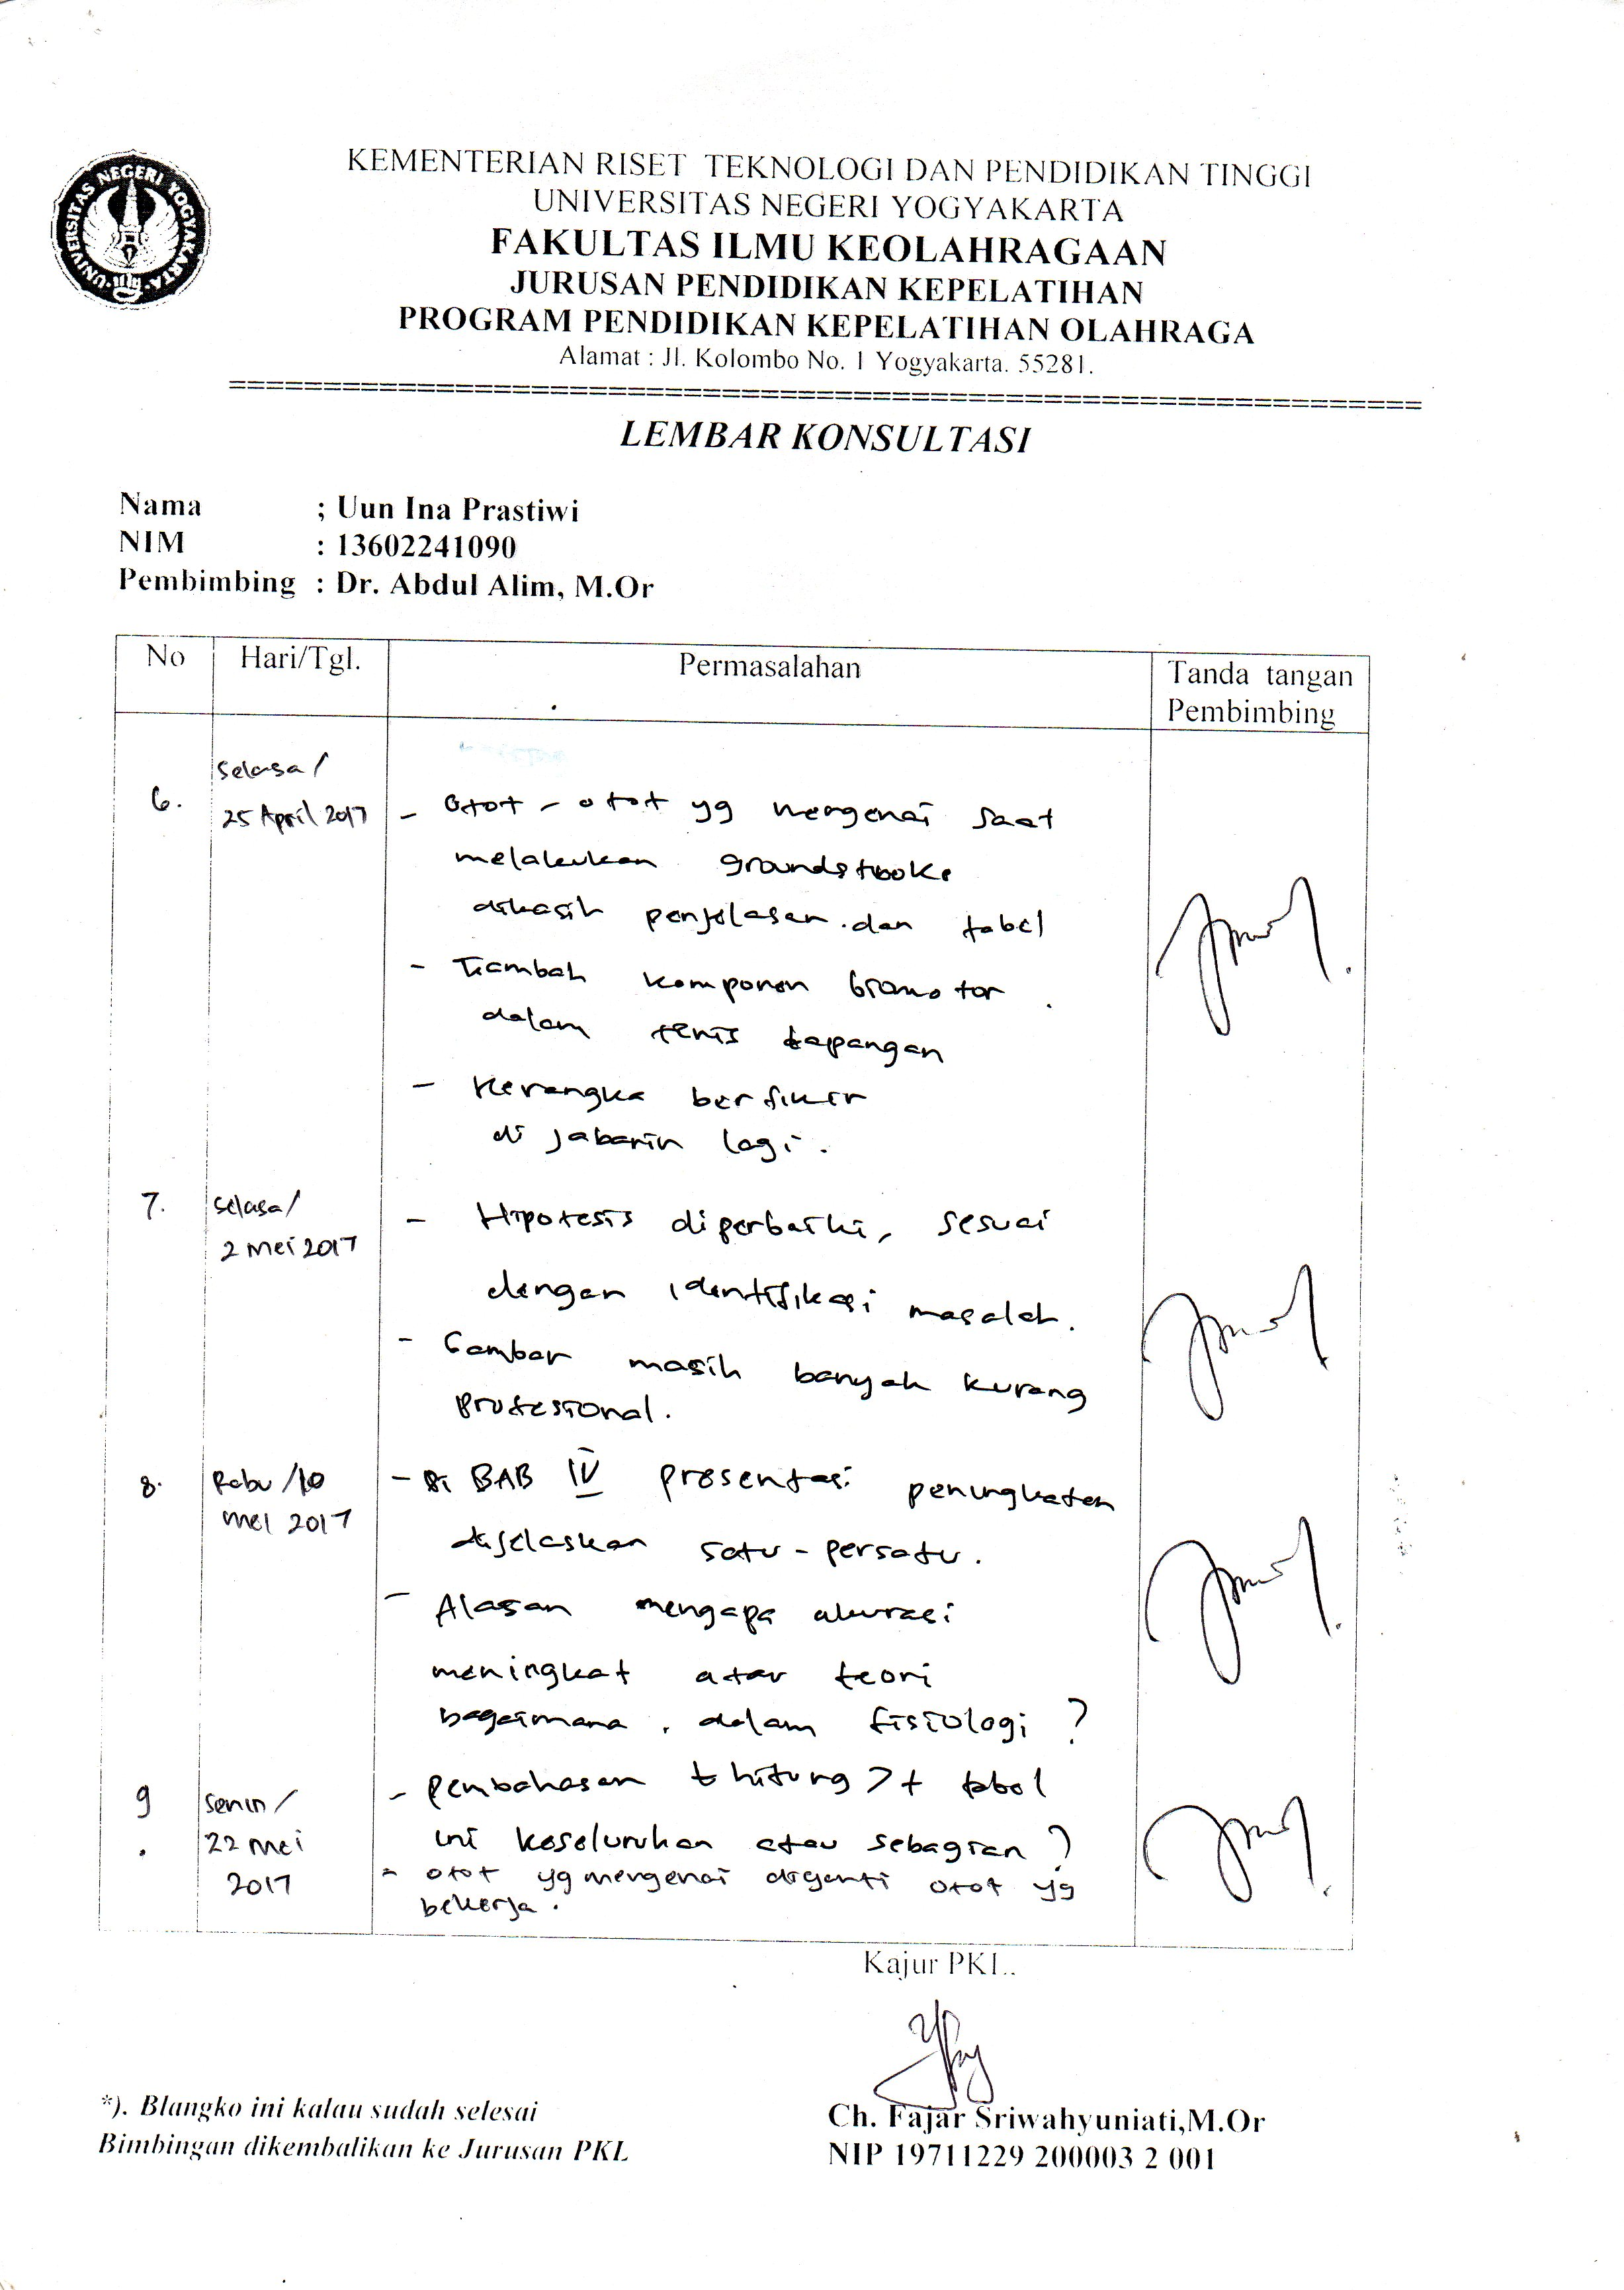 UNIVERSITAS NEGERI YOGYAKARTA
KEMENTERIAN RISET TEKNOLOGI DAN PENDIDIKAN TINGGI
UNIVERSITAS NEGERI YOGYAKARTA
FAKULTAS ILMU KEOLAHRAGAAN
JURUSAN PENDIDIKAN KEPELATIHAN
PROGRAM PENDIDIKAN KEPELATIHAN OLAHRAGA
Alamat : Jl. Kolombo No. 1 Yogyakarta. 55281.
LEMBAR KONSULTASI
Nama ; Uun Ina Prastiwi
NIM : 13602241090
Pembimbing : Dr. Abdul Alim, M.Or
No Hari/Tgl. Permasalahan Tanda tangan
Pembimbing
6. Selasa/
25 April 2017 - Otot - otot yg mengenai saat
melakukan groundstroke
dikasih penjelasan dan tabel
- Tambah komponen biomotor
dalam tenis lapangan
- Kerangka berfikir
di jabarin lagi.
7. Selasa/
2 Mei 2017 - Hipotesis diperbaiki, sesuai
dengan identifikasi masalah.
- Gambar masih banyak kurang
profesional.
8. Rabu /10
mei 2017 - di BAB IV presentasi peningkatan
dijelaskan satu - persatu.
- Alasan mengapa akurasi
meningkat atau teori
bagaimana, dalam fisiologi ?
9. Senin /
22 Mei
2017 - pembahasan t hitung > t tabel
ini keseluruhan atau sebagian ?
- otot yg mengenai diganti otot yg
bekerja.
Kajur PKL.
*). Blangko ini kalau sudah selesai
Bimbingan dikembalikan ke Jurusan PKL
Ch. Fajar Sriwahyuniati,M.Or
NIP 19711229 200003 2 001